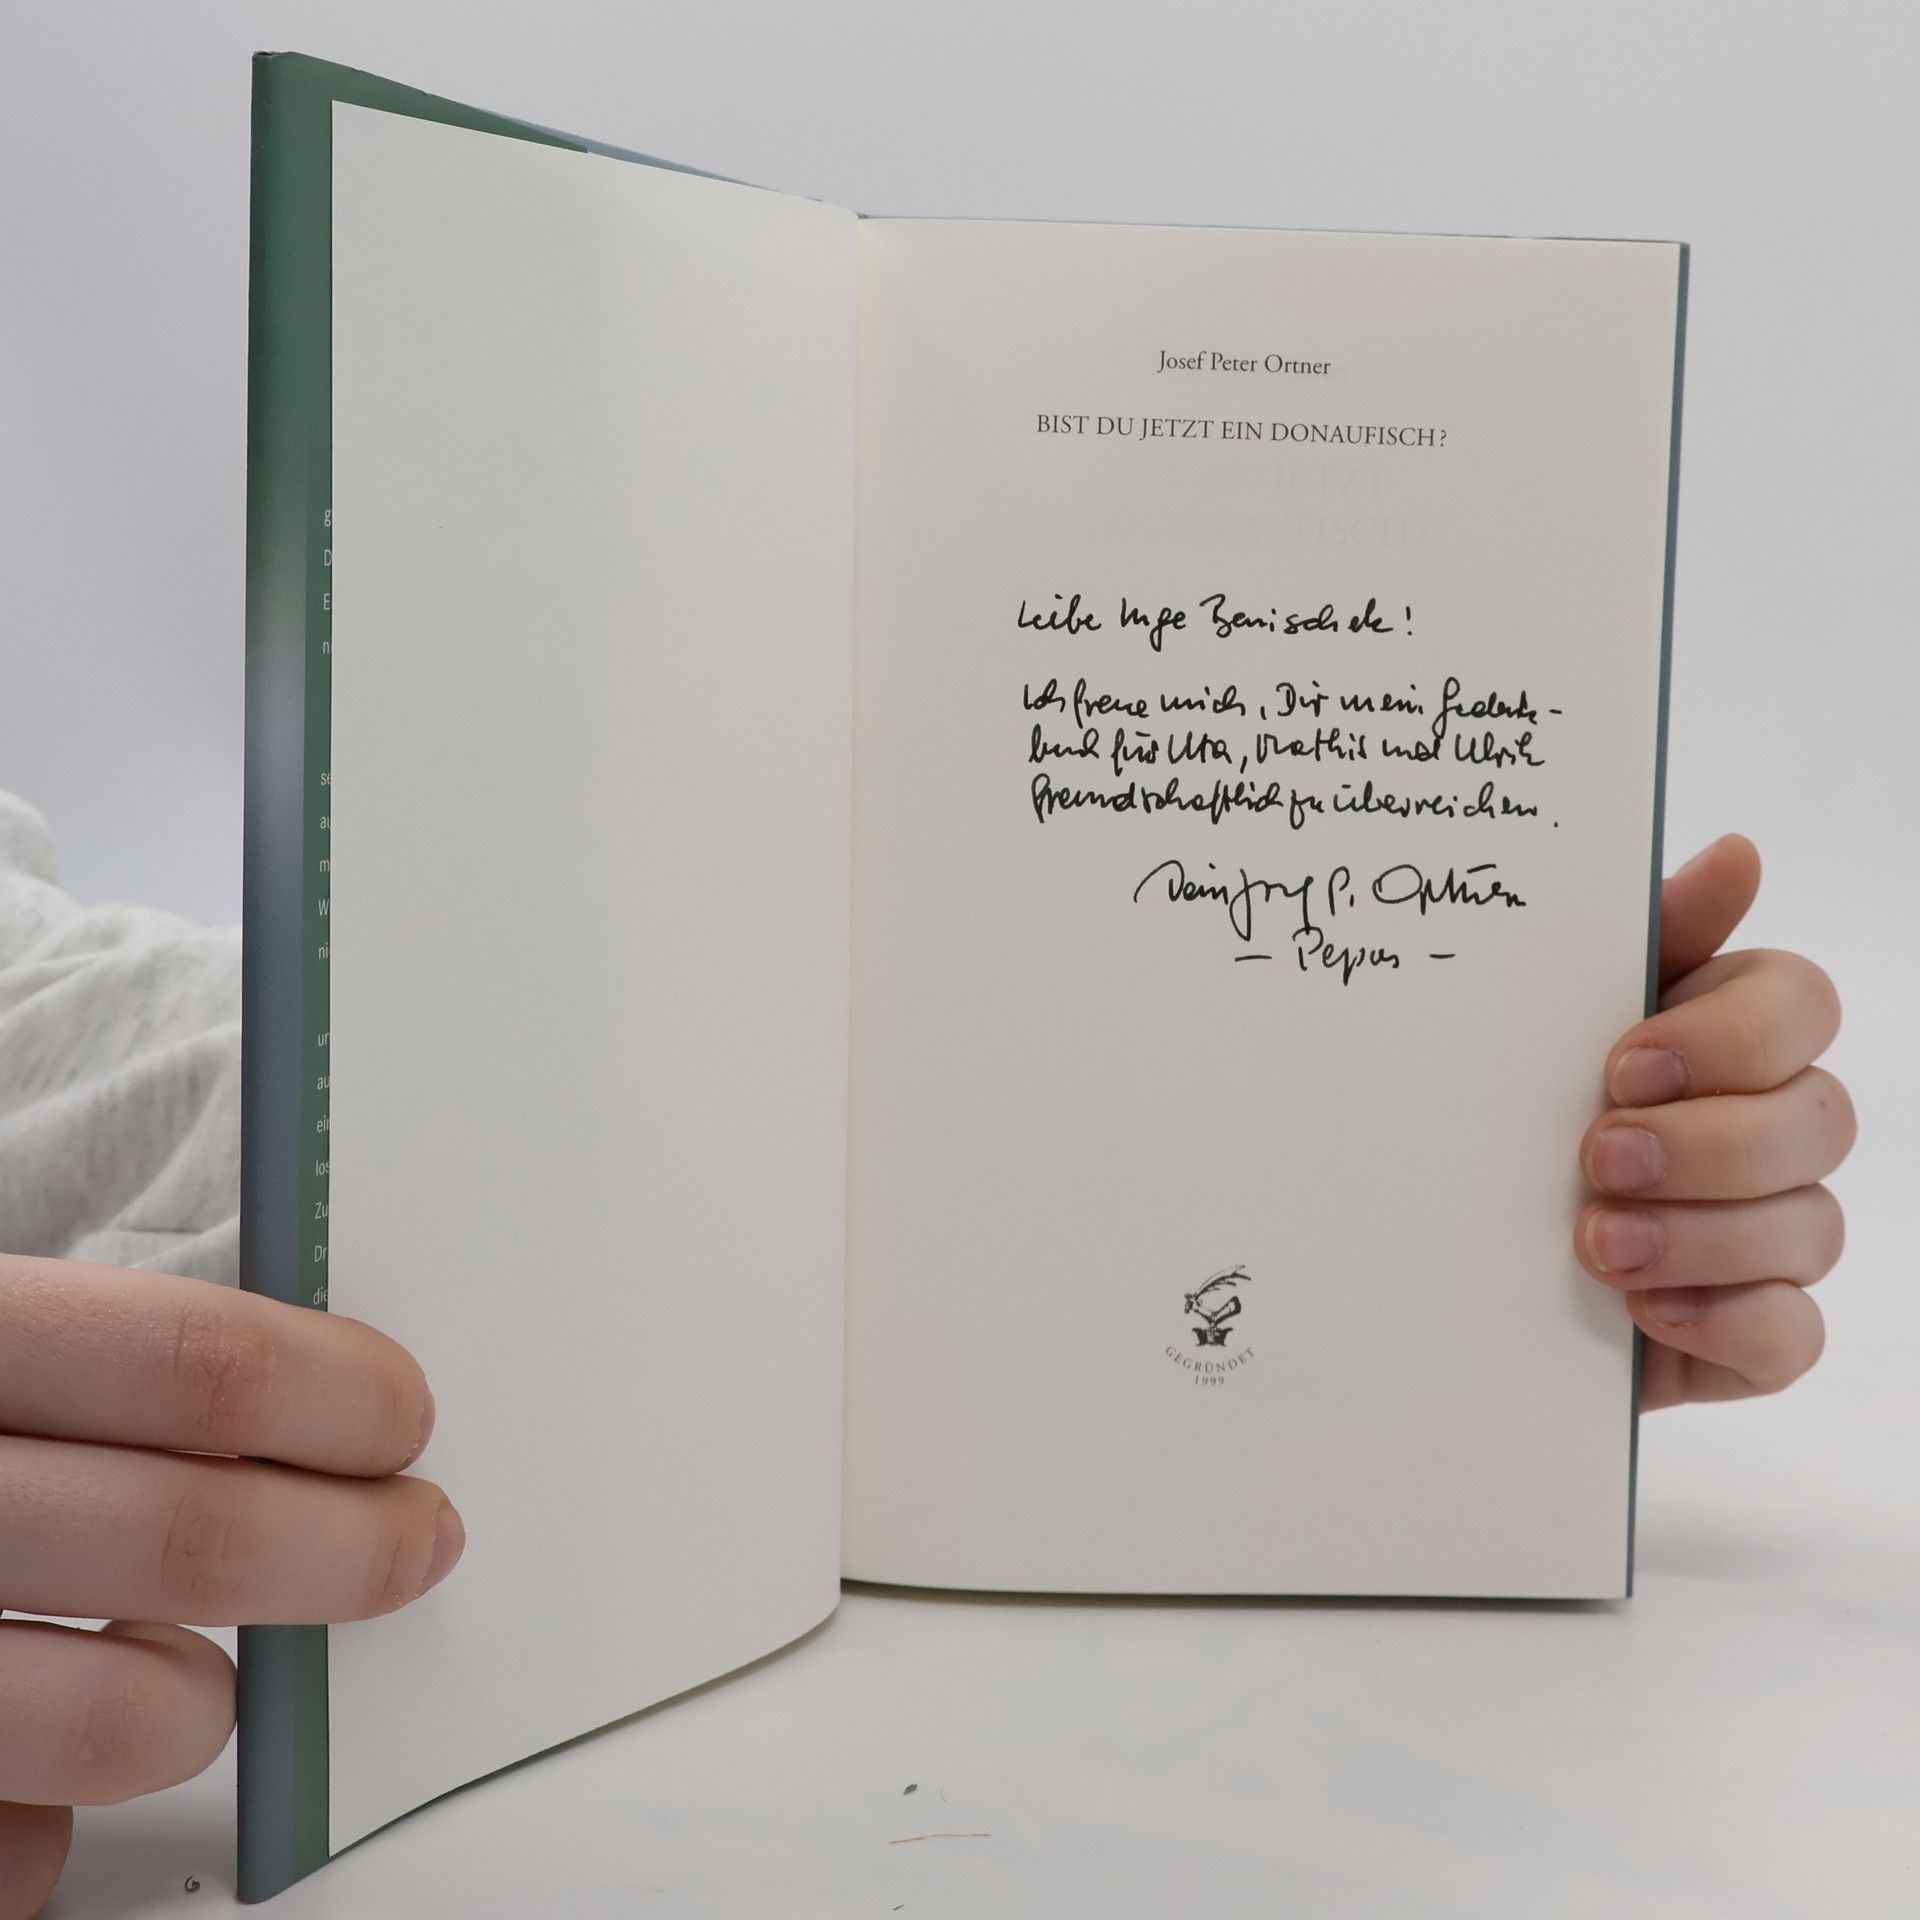 g
D
E
ni
se
au
m
W
nic
un
au
ein
los
Zu
Dr
die
Josef Peter Ortner
BIST DU JETZT EIN DONAUFISCH?
Liebe Inge Benischek!
Ich freue mich, Dir mein Gedenk-
buch für Uta, Mathis und Ulrik
freundschaftlich zu überreichen.
Dein Josef P. Ortner
— Pepus —
GEGRÜNDET
1999